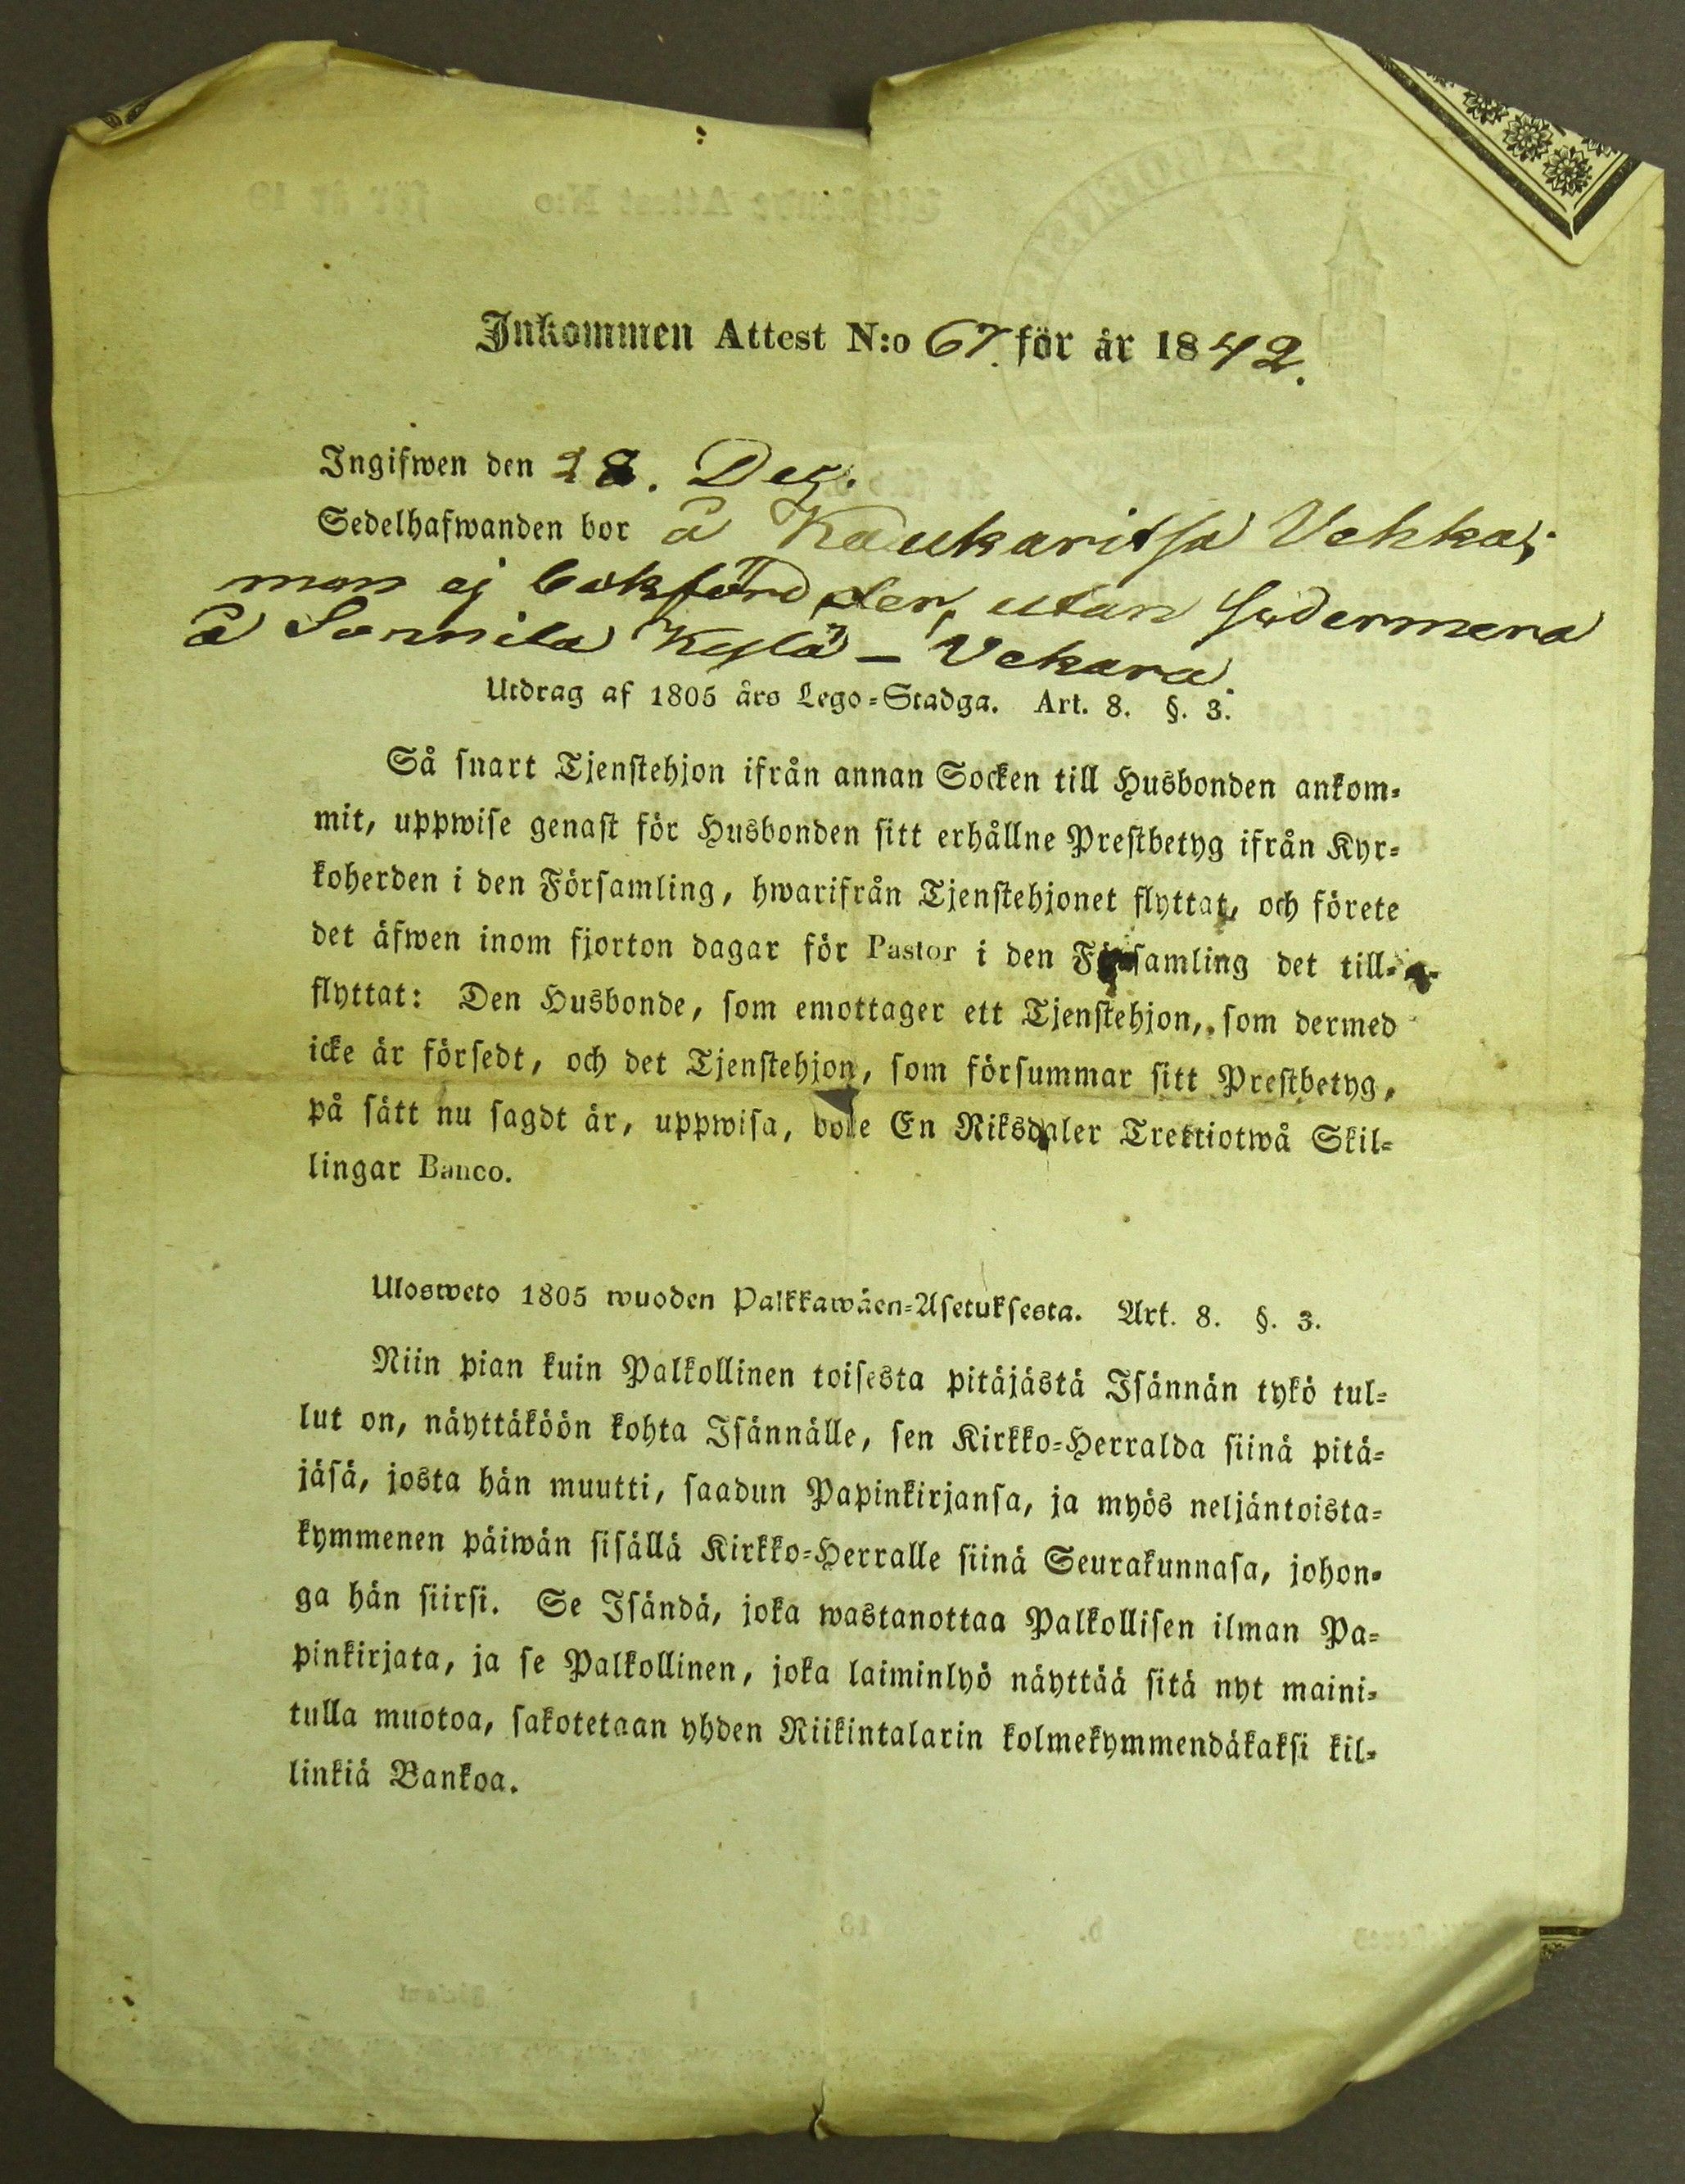 Inkommen Attest N:o 67. för år 1842.
Ingifwen den 28. Dec.
Sedelhafwanden bor å Kaukaritsa Vekka;
men ej bokförd der, utan sedermera
å Sonnila Kylä - Vekara.
Utdrag af 1805 års Lego-Stadga. Art. 8. §. 3.
Så snart Tjenstehjon ifrån annan Socken till Husbonden ankom-
mit, uppwise genast för Husbonden sitt erhållne Prestbetyg ifrån Kyr-
koherden i den Församling, hwarifrån Tjenstehjonet flyttat, och förete
det äfwen inom fjorton dagar för Pastor i den Församling det till-
flyttat: Den Husbonde, som emottager ett Tjenstehjon, som dermed
icke är försedt, och det Tjenstehjon, som försummar sitt Prestbetyg,
på sätt nu sagdt är, uppwisa, bote En Riksdaler Trettiotwå Skil-
lingar Banco.
Ulosweto 1805 wuoden Palkkawäen-Asetuksesta. Art. 8. §. 3.
Niin pian kuin Palkollinen toisesta pitäjästä Isännän tykö tul-
lut on, näyttäköön kohta Isännälle, sen Kirkko-Herralda siinä pitä-
jäsä, josta hän muutti, saadun Papinkirjansa, ja myös neljäntoista-
kymmenen päiwän sisällä Kirkko-Herralle siinä Seurakunnasa, johon-
ga hän siirsi. Se Isändä, joka wastanottaa Palkollisen ilman Pa-
pinkirjata, ja se Palkollinen, joka laiminlyö näyttää sitä nyt maini-
tulla muotoa, sakotetaan yhden Riikintalarin kolmekymmendäkaksi kil-
linkiä Bankoa.